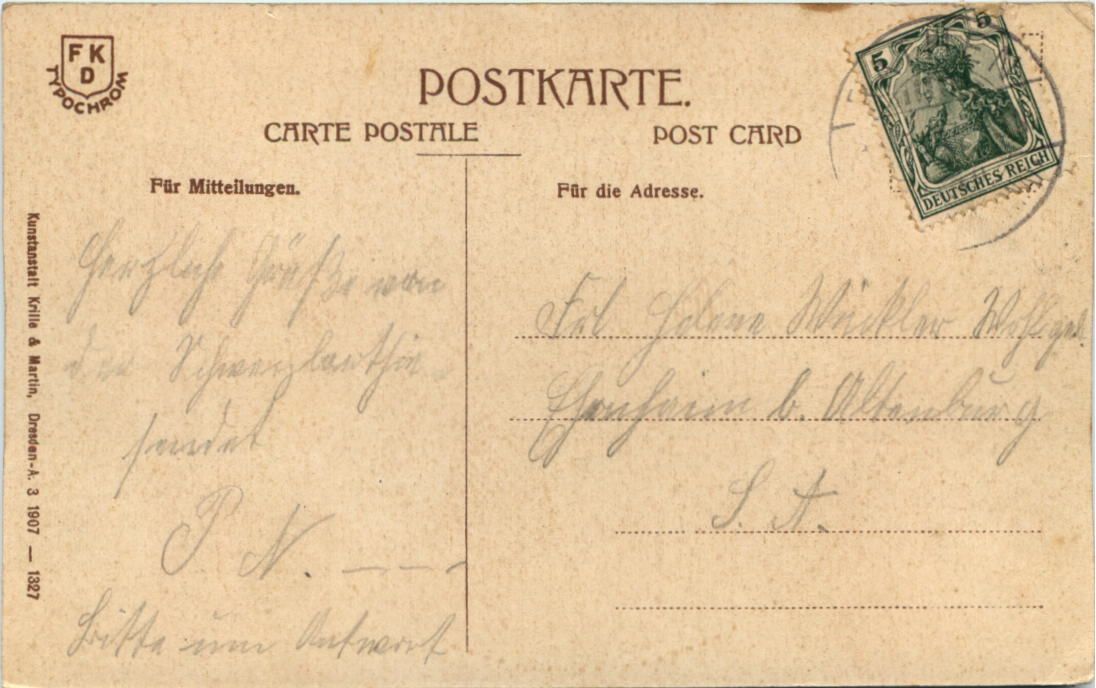 FKD
TYPOCHROM
POSTKARTE.
CARTE POSTALE
POST CARD
5
5
DEUTSCHES REICH
Für Mitteilungen.
Für die Adresse.
Kunstanstalt Krille & Martin, Dresden-A. 3 1907 — 1327
Herzliche Grüße von
der
sendet
P. N.
Bitte um Antwort
Frl Helene Winkler
b. Altenburg
S. A.